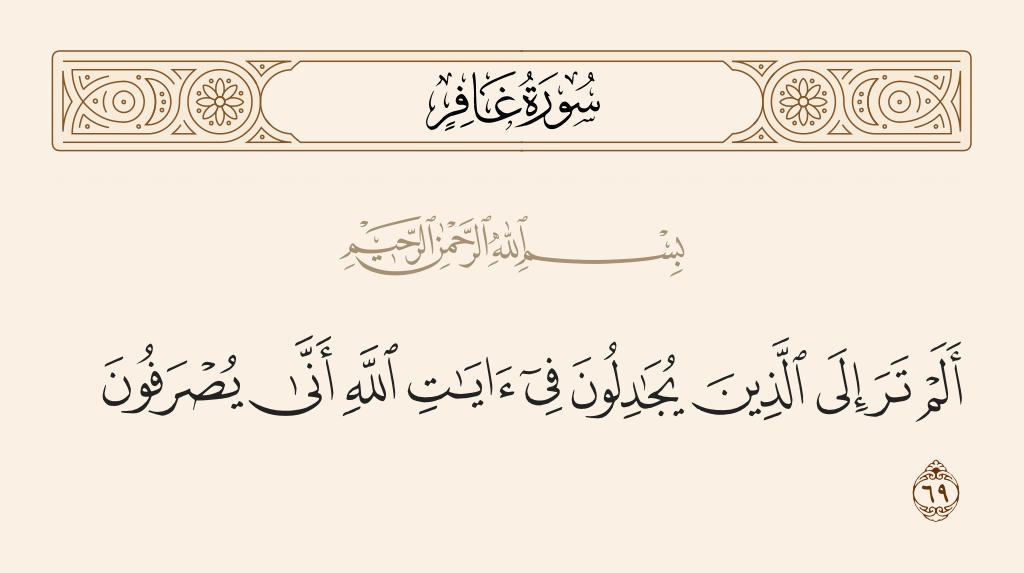 سُورَةُ غَافِرٍ
بِسْمِ ٱللَّهِ ٱلرَّحْمَٰنِ ٱلرَّحِيمِ
أَلَمْ تَرَ إِلَى ٱلَّذِينَ يُجَٰدِلُونَ فِىٓ ءَايَٰتِ ٱللَّهِ أَنَّىٰ يُصْرَفُونَ
٦٩